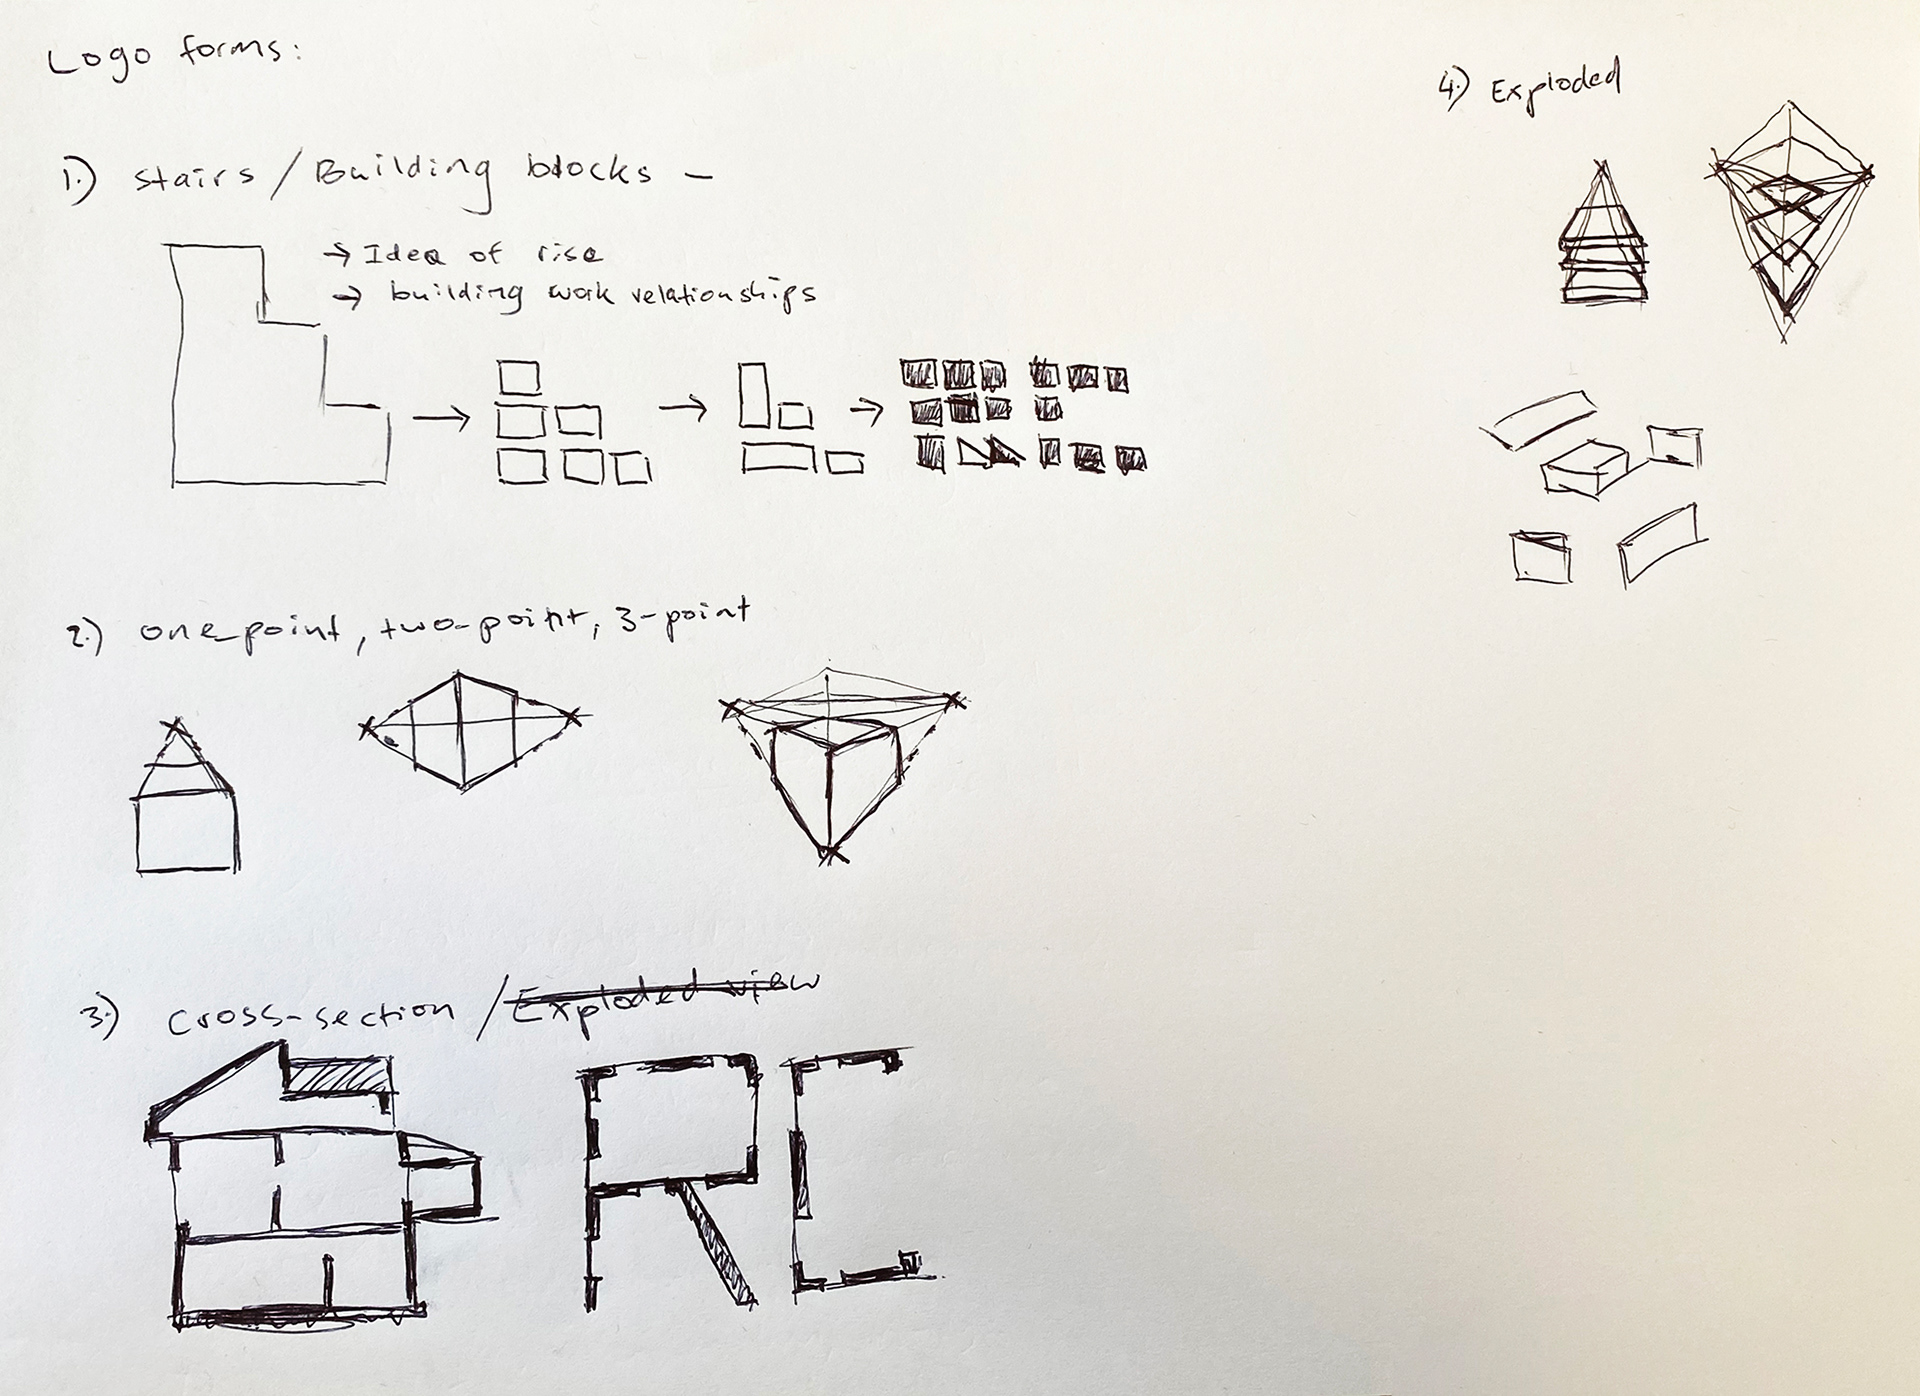 Logo forms:
1.) stairs / Building blocks –
→ Idea of rise
→ building work relationships
2.) one-point, two-point, 3-point
3.) cross-section / Exploded view
RC
4.) Exploded